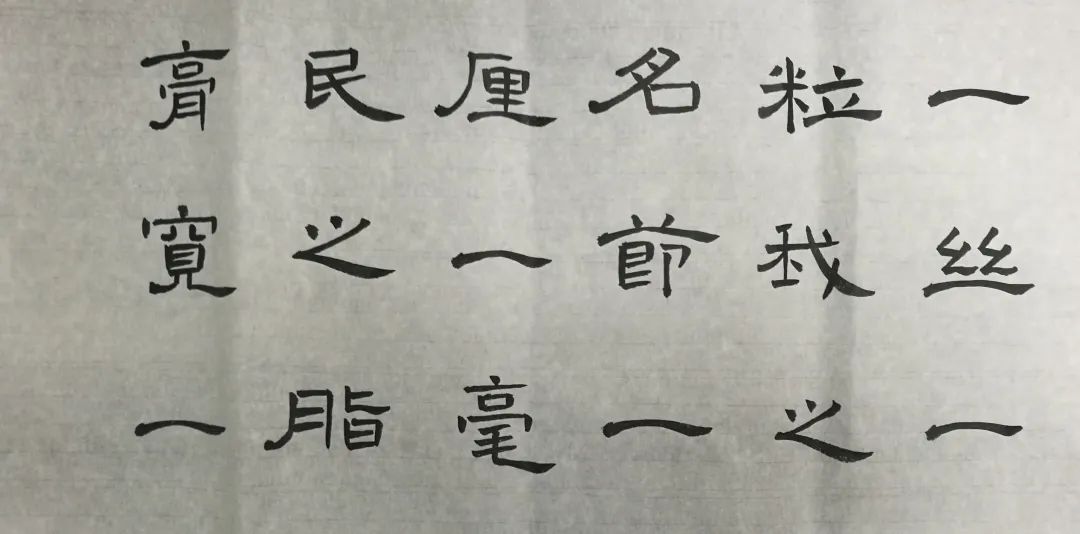 一丝一
粒我之
名節一
厘一毫
民之脂
膏寬一